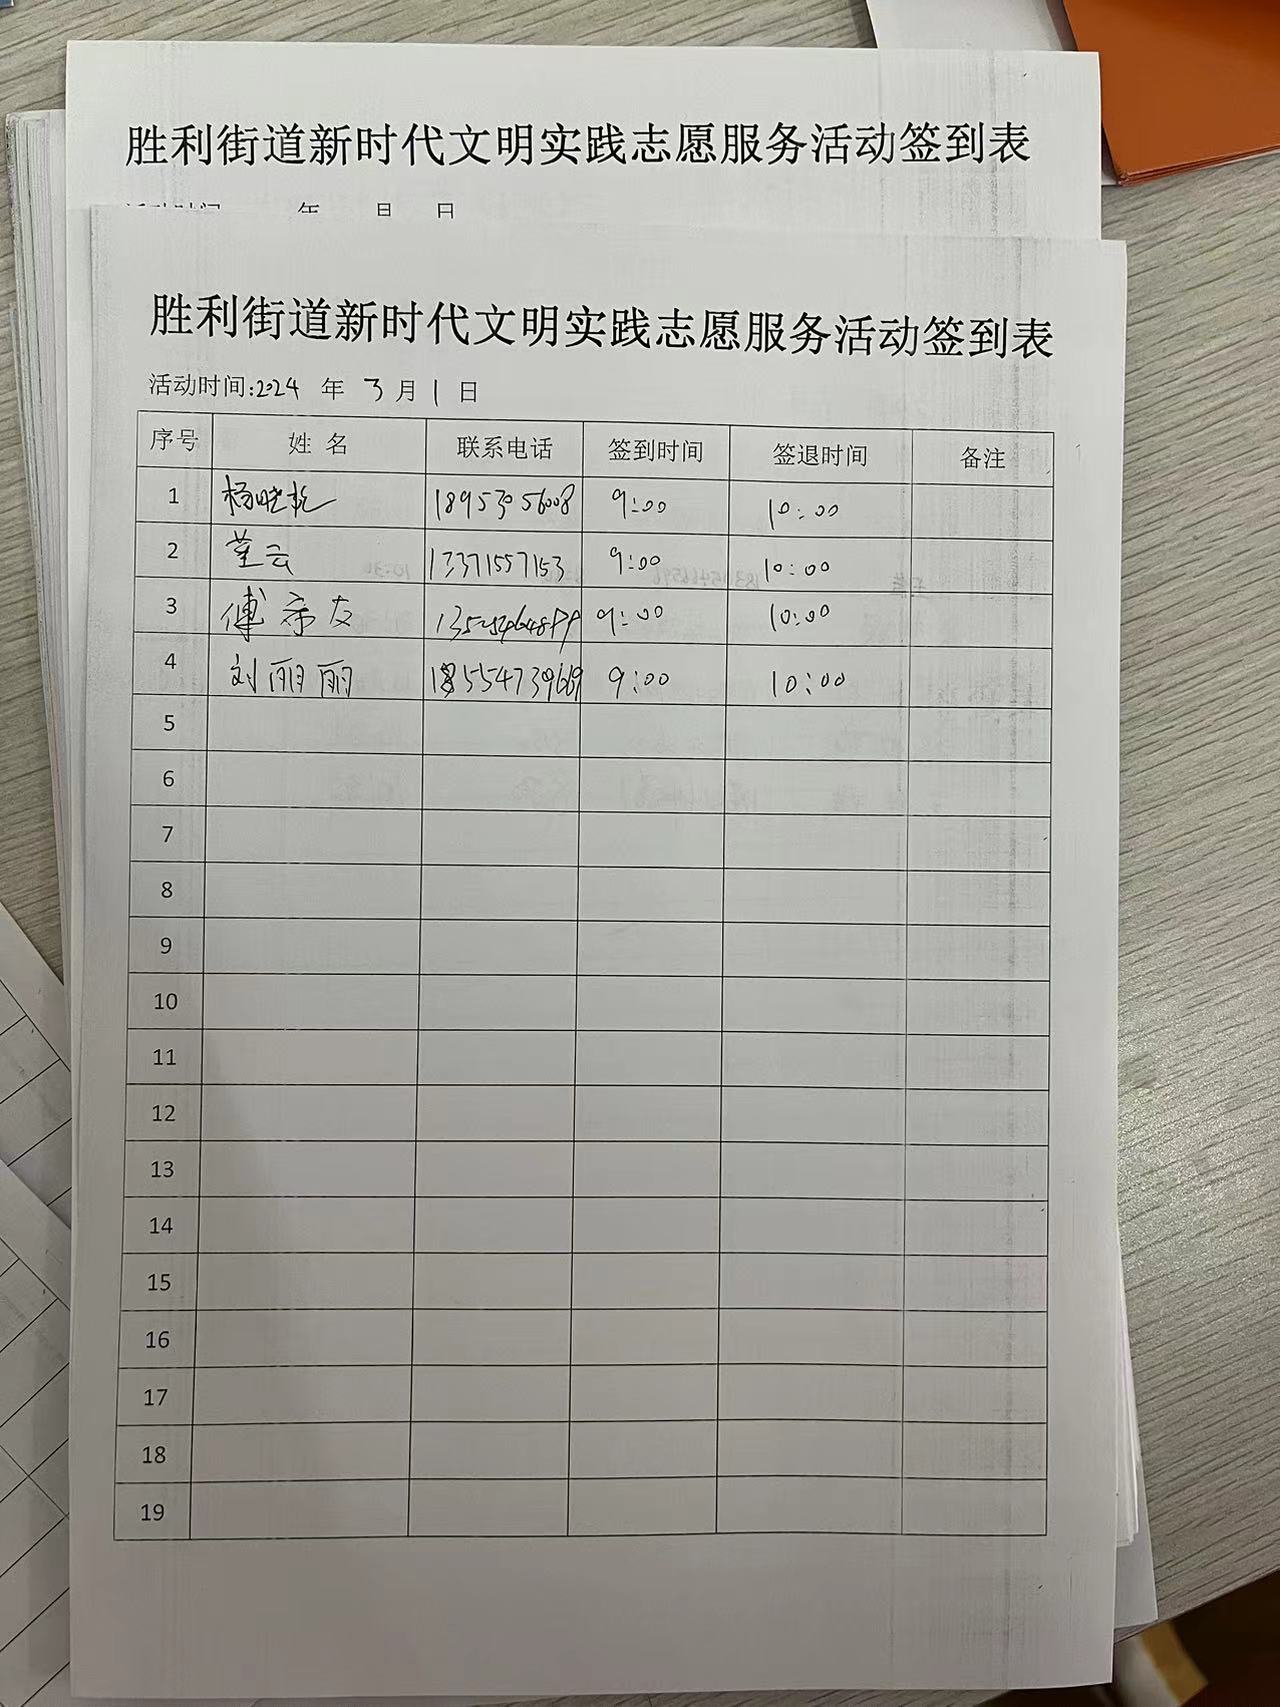 胜利街道新时代文明实践志愿服务活动签到表
活动时间 年 月 日
胜利街道新时代文明实践志愿服务活动签到表
活动时间:2024 年 3 月 1 日
序号 姓 名 联系电话 签到时间 签退时间 备注
1 杨晓乾 18953056008 9:00 10:00
2 董云 13371557153 9:00 10:00
3 傅 友 9:00 10:00
4 刘丽丽 185554739669 9:00 10:00
5
6
7
8
9
10
11
12
13
14
15
16
17
18
19